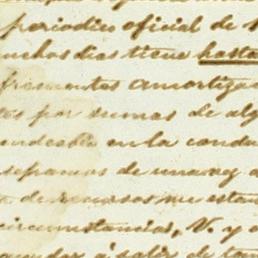 periodico oficial de
muchos dias tiene hasta
frecuentes amortiza
por sumas de alg
en la condu
sepamos de una vez
de recursos me esta
circunstancias, V. y o
ayudar á salir de tan